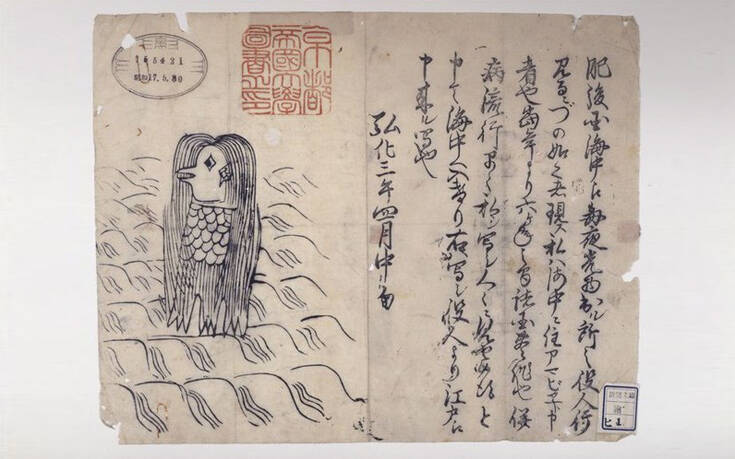 肥後国海中え毎夜光物出ル所之役人行
見るニづの如之者現ス私ハ海中ニ住アマビヱト申
者也当年より六ヶ年之間諸国豊作也併
病流行早々私ヲ写シ人々ニ見せ候得と
申て海中へ入けり右写シ役人より江戸え
申来ル写也
弘化三年四月中旬
京都
帝國大學
圖書之印
165421
昭和17.5.30